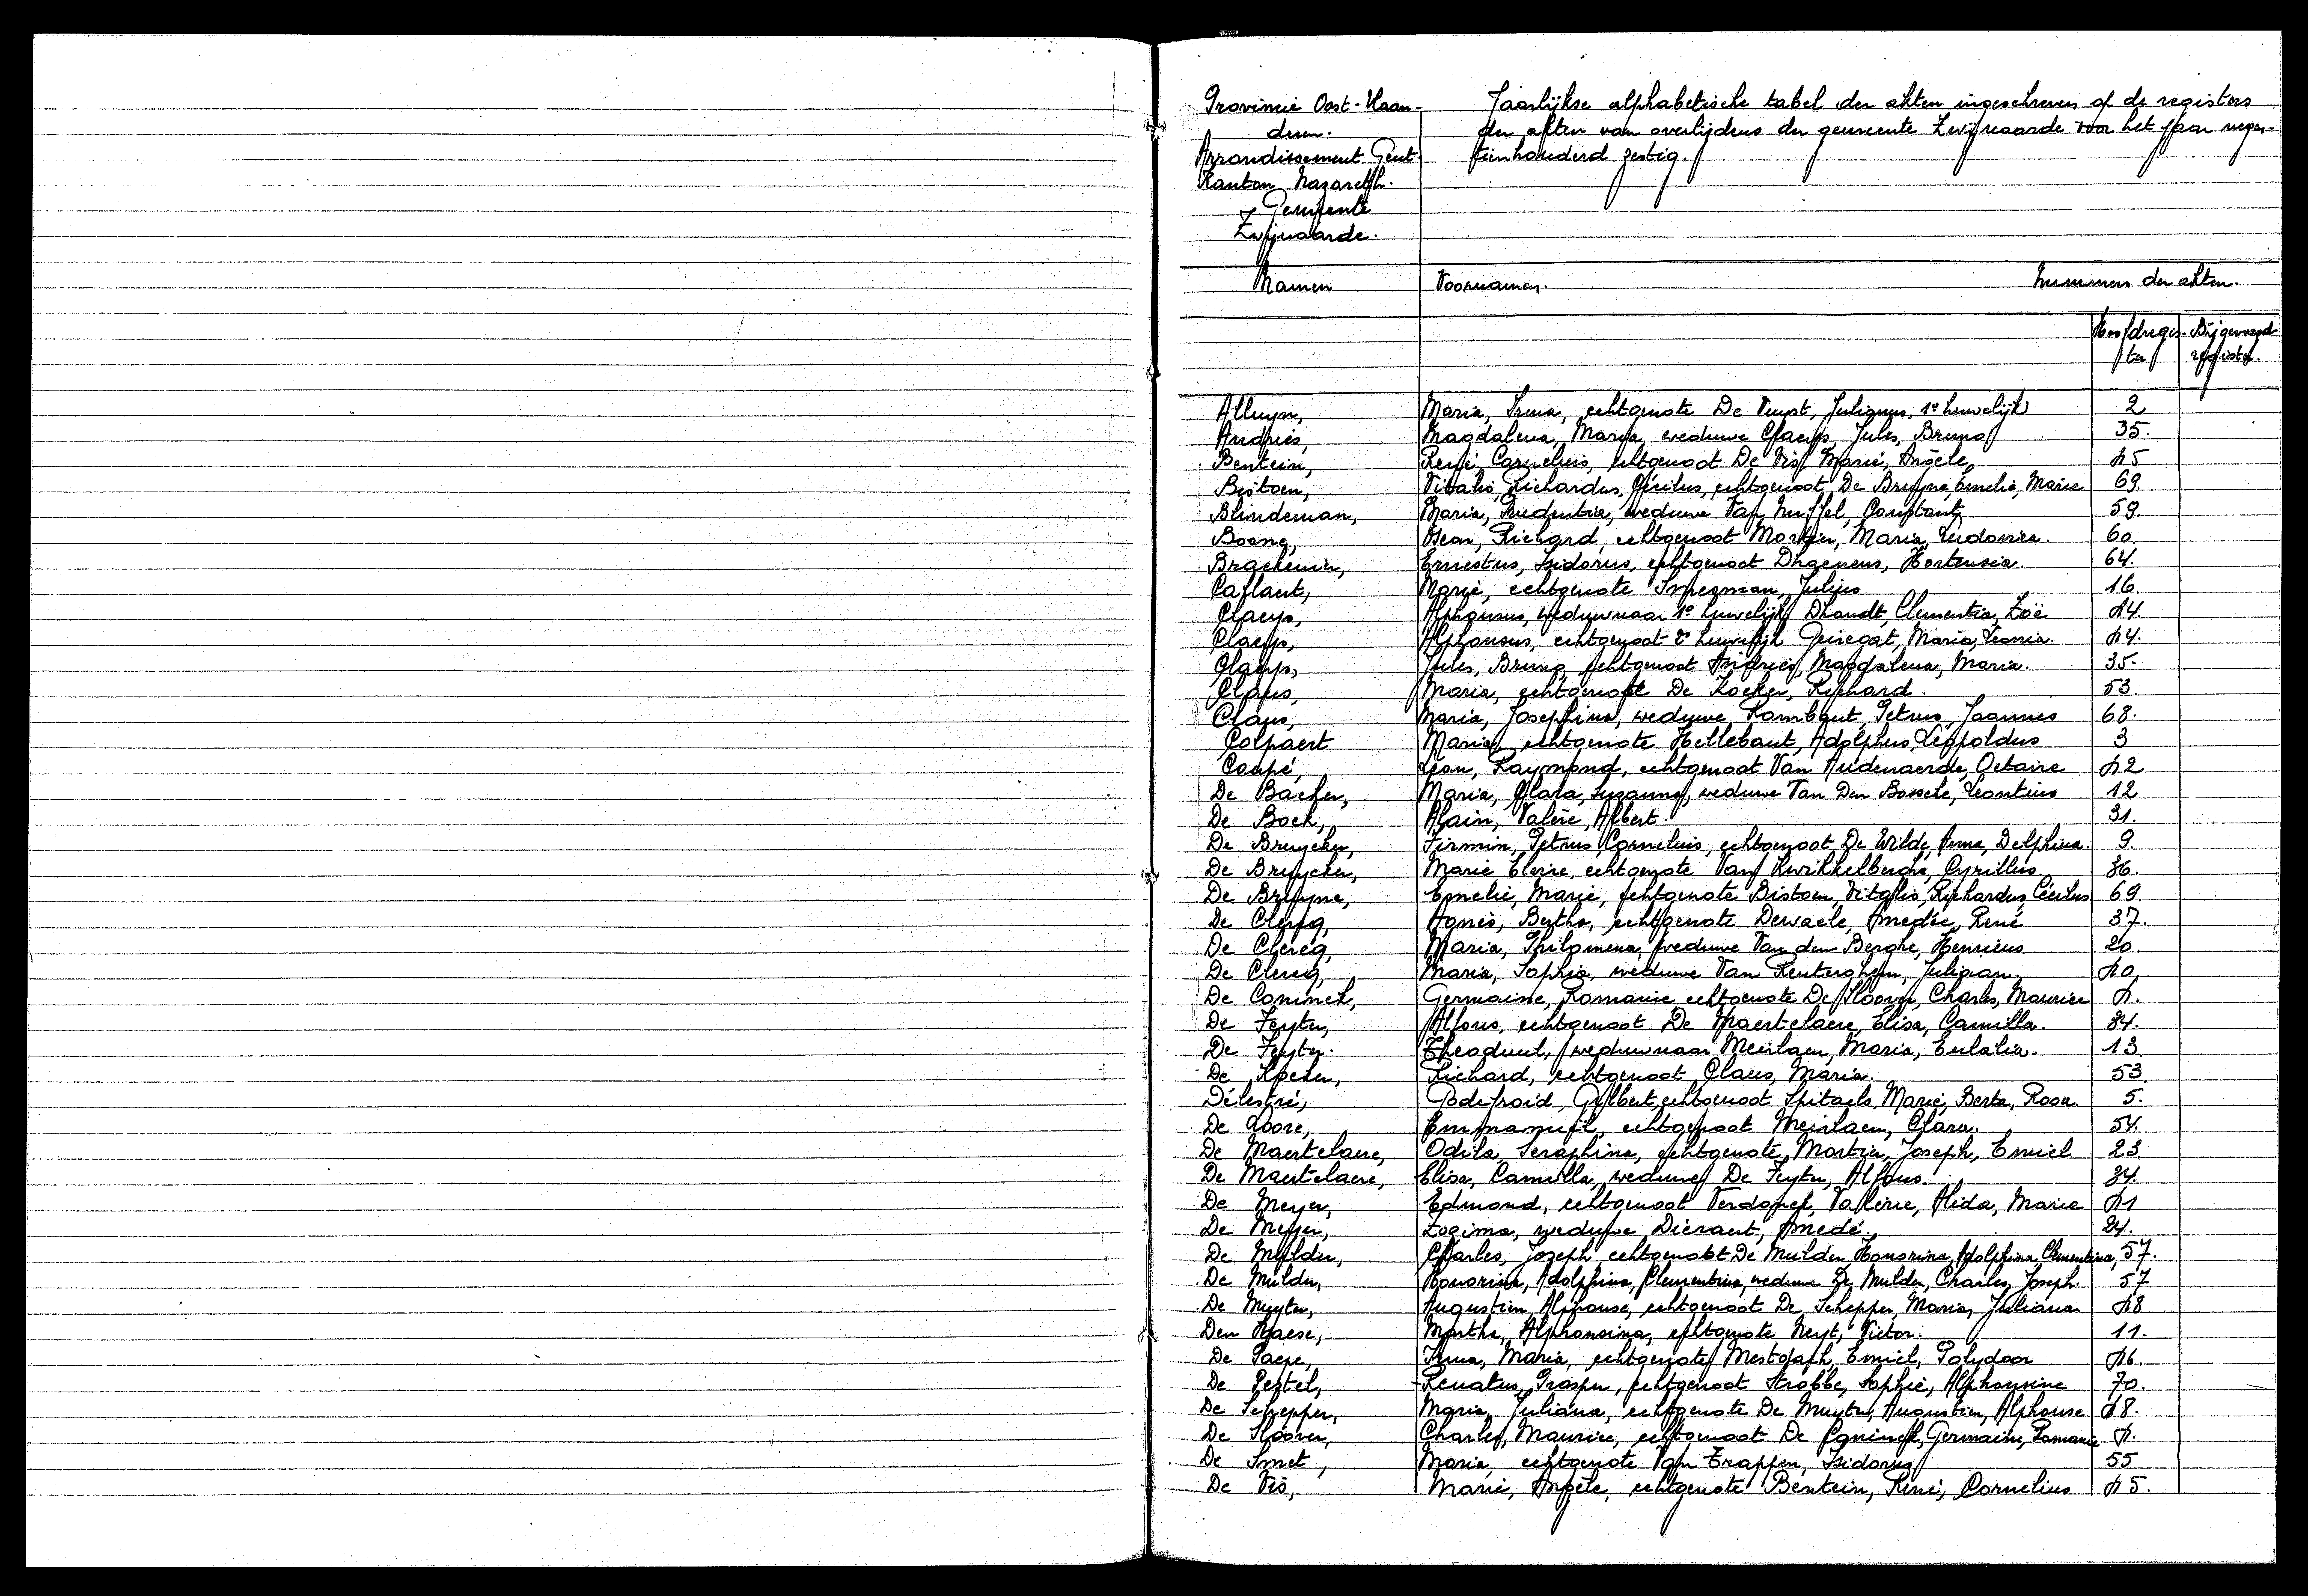 Provincie Oost-Vlaan-
deren.
Arrondissement Gent.
Kanton Nazareth.
Gemeente
Zwijnaarde.
Jaarlijkse alphabetische tabel der akten ingeschreven op de registers
der akten van overlijdens der gemeente Zwijnaarde voor het jaar negen-
tienhonderd zestig.
Namen Voornamen. Nummers der akten.
Hoofdregis-ter Bijgevoegd register.
Alluyn, Maria, Irma, echtgenote De Vuyst, Julianus, 1e huwelijk 2
Andries, Magdalena, Maria, weduwe Claeys, Jules, Bruno 35.
Bentein, René, Cornelius, echtgenoot De Vis, Marie, Angèle
Bistoen, Vitalis, Richardus, Cécilus, echtgenoot De Bruyne, Emelie, Marie 69.
Blindeman, Maria, Prudentia, weduwe Van Nuffel, Constant 59.
Boone, Oscar, Richard, echtgenoot Mortier, Maria, Ludovica. 60.
Brackenier, Ernestus, Isidorus, echtgenoot Dhaenens, Hortensia. 64.
Caflaert, Marie, echtgenote Impegman, Julius 16
Claeys, Alphonsus, weduwnaar 1e huwelijk Dhondt, Clementia, Zoë
Claeys, Alphonsus, echtgenoot 2e huwelijk Geiregat, Maria, Leonia.
Claeys, Jules, Bruno, echtgenoot Andries, Magdalena, Maria. 35.
Claus, Maria, echtgenote De Kocker, Richard. 53.
Claus, Maria, Josephina, weduwe Rombaut, Petrus, Joannes 68.
Colpaert Maria, echtgenote Hellebaut, Adolphus, Leopoldus 3
Coupé, Leon, Raymond, echtgenoot Van Audenaerde, Octavie
De Backer, Maria, Clara, Suzanna, weduwe Van Den Bossche, Leontius 12
De Bock, Alain, Valère, Albert. 31.
De Bruycker, Firmin, Petrus, Cornelius, echtgenoot De Wilde, Irma, Delphina. 9.
De Bruycker, Marie, Elvire, echtgenote Van Kwikkelberghe, Cyrillus. 36.
De Bruyne, Emelie, Marie, echtgenote Bistoen, Vitalis, Richardus, Cécilus 69.
De Clercq, Agnès, Bertha, echtgenote Dewaele, Amedée, René 37.
De Clercq, Maria, Philomena, weduwe Van den Berghe, Henricus 20.
De Clercq, Maria, Sophia, weduwe Van Renterghem, Juliaan.
De Coninck, Germaine, Romanie echtgenote De Sloover, Charles, Maurice
De Feyter, Alfons, echtgenoot De Maertelaere, Elisa, Camilla. 34.
De Feyter. Theoduul, weduwnaar Meirlaen, Maria, Eulalia. 13.
De Kocker, Richard, echtgenoot Claus, Maria. 53
Délestré, Godefroid, Gilbert, echtgenoot Spitaels, Marie, Berta, Rosa. 5.
De Loore, Emmanuel, echtgenoot Meirlaen, Clara. 54.
De Maertelaere, Odila, Seraphina, echtgenote Martin, Joseph, Emiel 23
De Maertelaere, Elisa, Camilla, weduwe De Feyter, Alfons. 34.
De Meyer, Edmond, echtgenoot Verdonck, Valérie, Alida, Marie
De Meyer, Zogima, weduwe Diéraert, Amedé. 24.
De Mulder, Charles, Jozeph, echtgenoot De Mulder, Honorina, Adolphina, Clementina, 57.
De Mulder, Honorina, Adolphina, Clementina, weduwe De Mulder, Charles, Joseph. 57
De Muyter, Augustien, Alphonse, echtgenoot De Schepper, Maria, Juliana
Den Haese, Martha, Alphonsina, echtgenote Neyt, Victor. 11.
De Paepe, Irma, Maria, echtgenote Mestdagh, Emiel, Polydoor
De Pestel, Renatus, Prosper, echtgenoot Strobbe, Sophie, Alphonsine 70.
De Schepper, Maria, Juliana, echtgenote De Muyter, Augustien, Alphonse
De Sloover, Charles, Maurice, echtgenoot De Coninck, Germaine, Romanie
De Smet, Maria, echtgenote Van Trappen, Isidorus 55
De Vis, Marie, Angèle, echtgenote Bentein, René, Cornelius